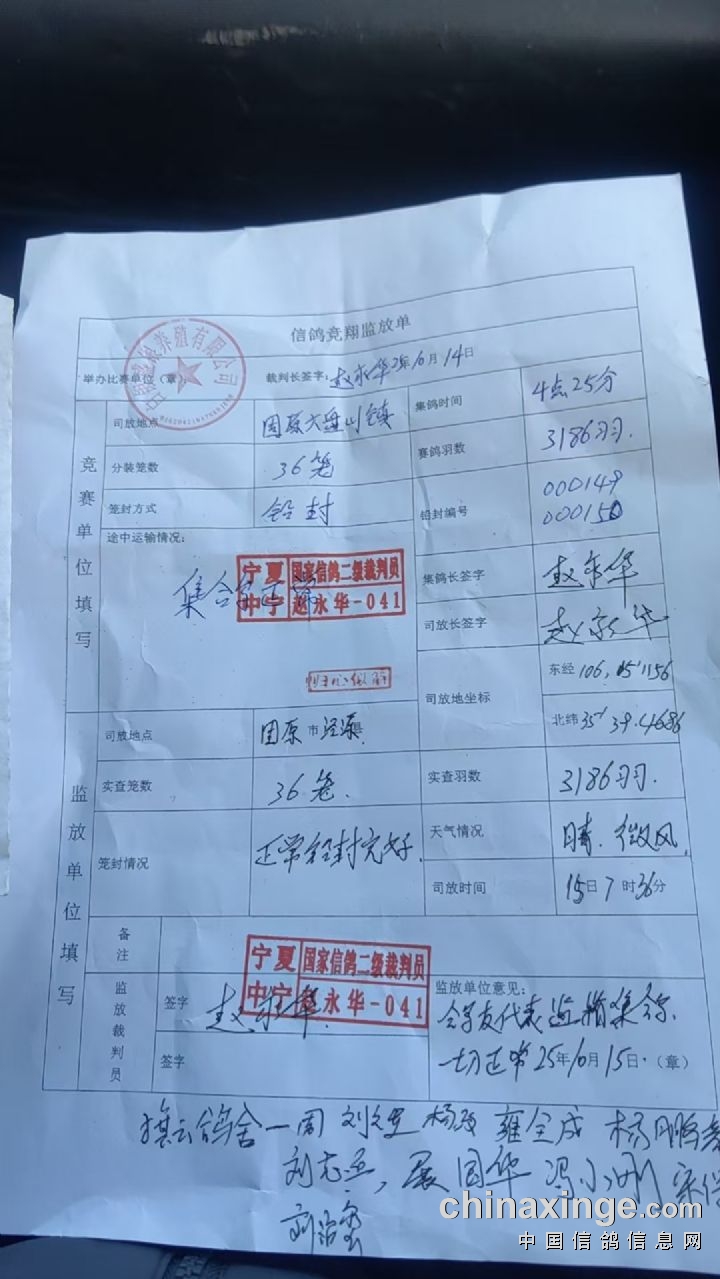 信鸽竞翔监放单
举办比赛单位（章） 裁判长签字：赵永华 25年10月14日
养殖有限公司
竞赛单位填写
司放地点 固原六盘山镇 集鸽时间 4点25分
分装笼数 36笼 赛鸽羽数 3186羽.
笼封方式 铅封 铅封编号 000149
000150
途中运输情况：
集合鸽正常
宁夏 国家信鸽二级裁判员
中宁 赵永华-041
集鸽长签字 赵永华
司放长签字 赵永华
司放地坐标 东经 106,05'1156
北纬 35° 39.4686
监放单位填写
司放地点 固原市泾源县
实查笼数 36笼. 实查羽数 3186羽.
笼封情况 正常铅封完好. 天气情况 晴.微风.
司放时间 15日7时36分
备注
监放裁判员
签字 赵永华
宁夏 国家信鸽二级裁判员
中宁 赵永华-041
签字
监放单位意见：
全鸽友代表监督集鸽
一切正常 25年10月15日.（章）
旗云鸽舍一周 杨 雍全成 杨鹏
刘志 展国华 冯小刚
刘治
chinaxinge.com
中国信鸽信息网